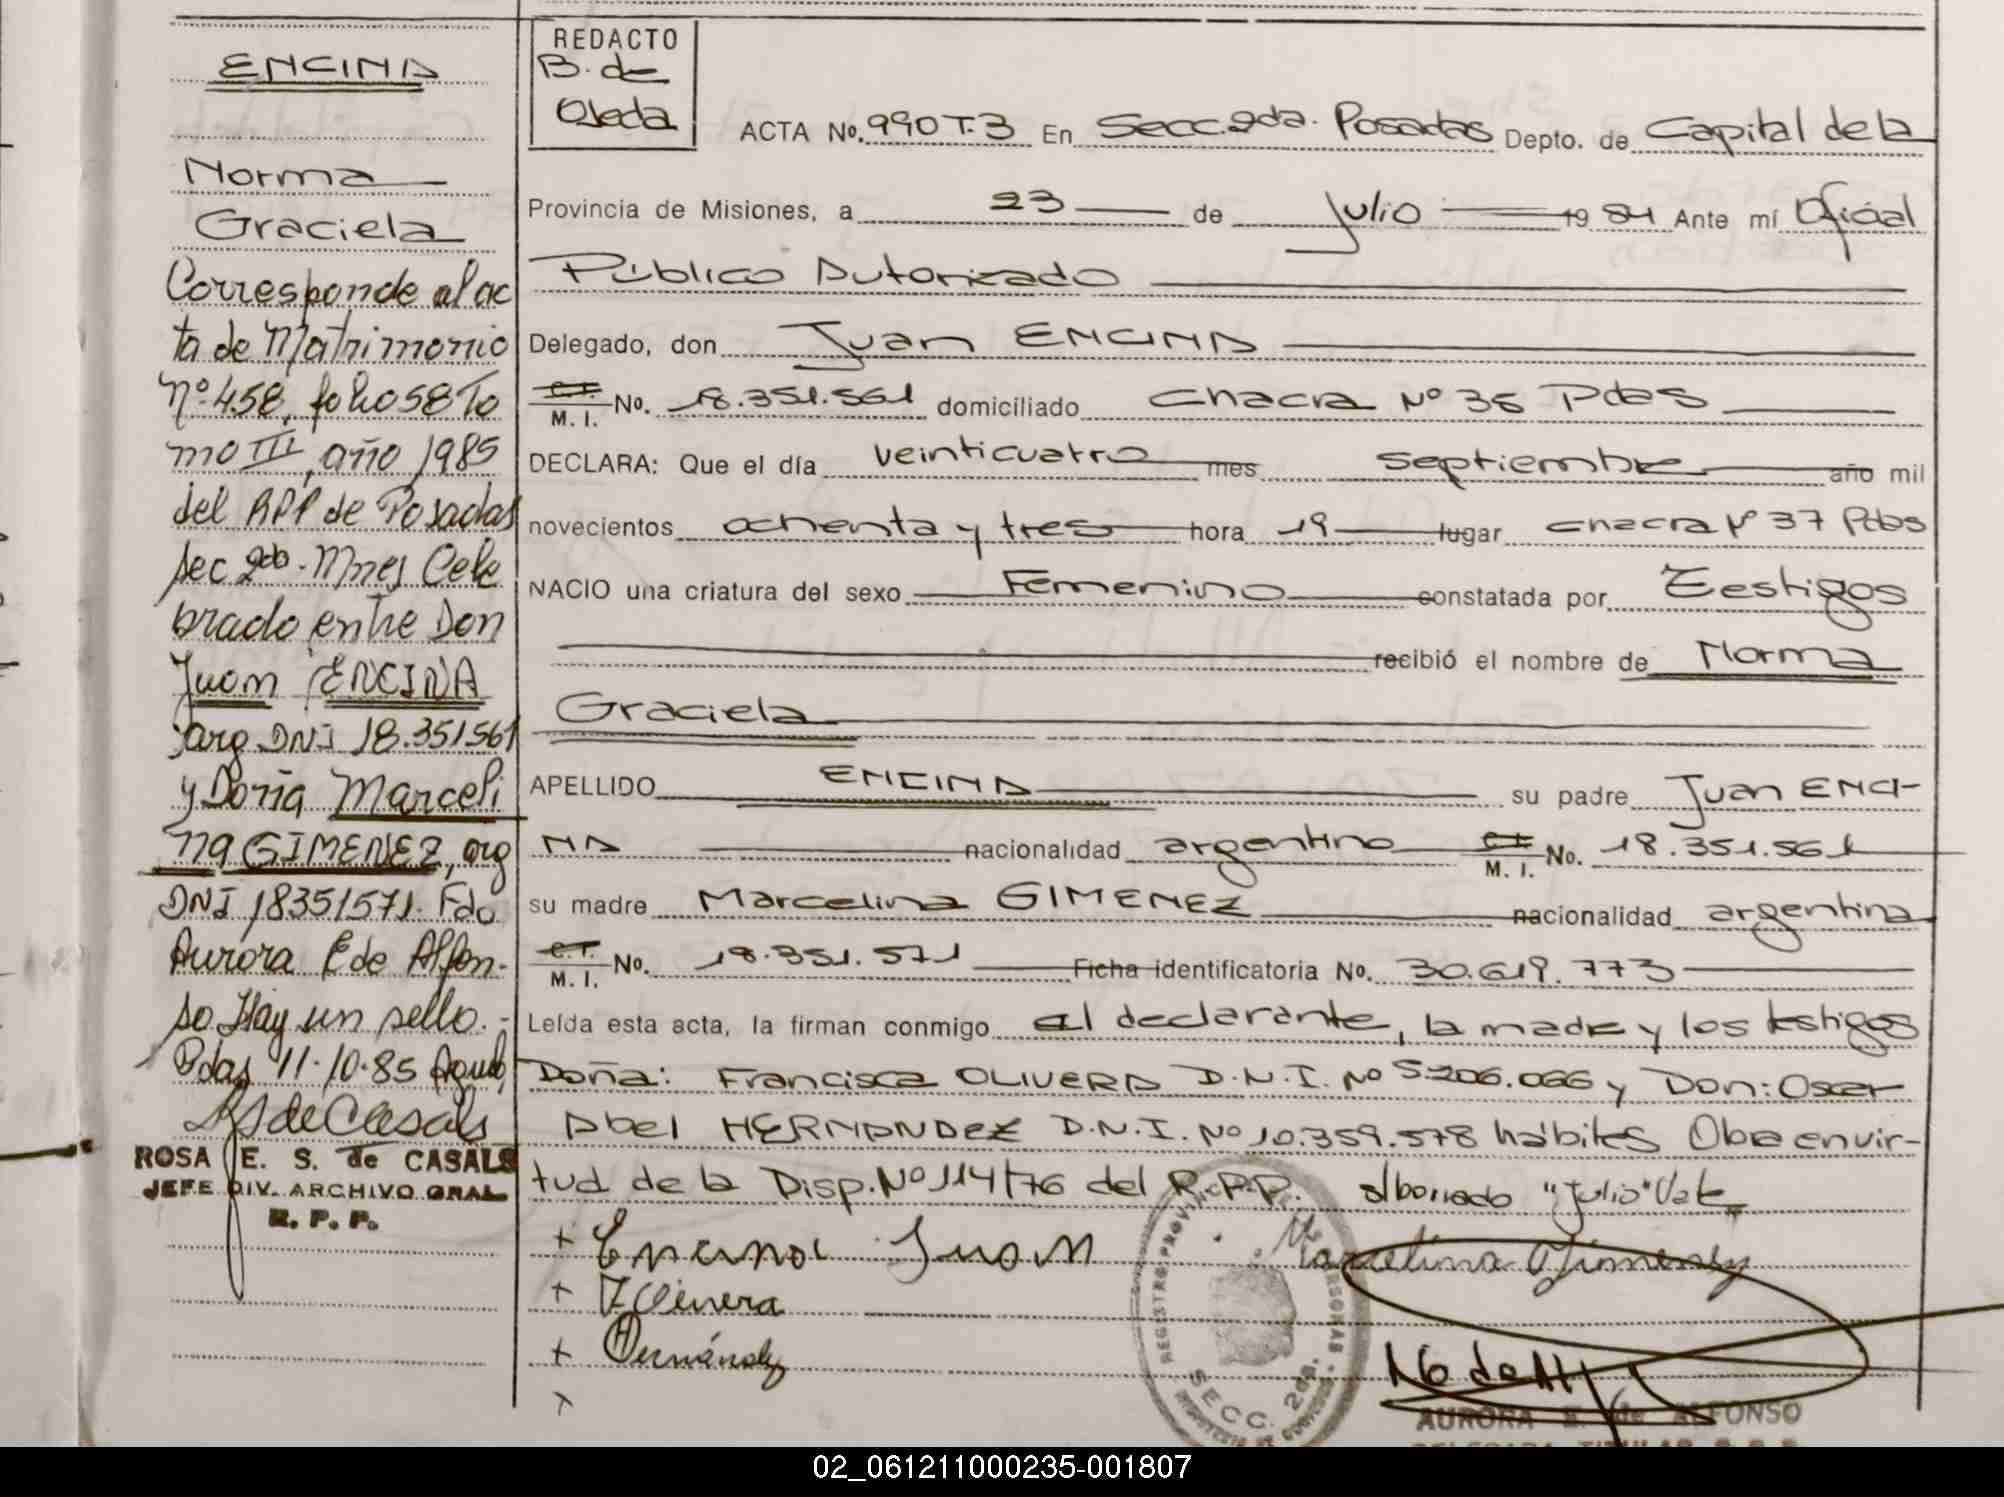 ENCINA
Norma
Graciela
Corresponde al ac
ta de Matrimonio
Nº 458, folio 58 To
mo III, año 1985
del RPP de Posadas
sec 2da. Mnes Cele
brado entre Don
Juan ENCINA
arg. DNI 18.351561
y Doña Marceli
na GIMENEZ, arg
DNI 18351571. Fdo
Aurora E de Alfon-
so Hay un sello.-
Pdas 11-10-85
ROSA E. S. de CASALS
JEFE DIV. ARCHIVO GRAL
R. P. P.
REDACTO
B. de
Ojeda
ACTA No. 990 T.3 En Secc. 2da. Posadas Depto. de Capital de la
Provincia de Misiones, a 23 de Julio 19 84 Ante mí Oficial
Público Autorizado
Delegado, don Juan ENCINA
C.I. M. I. No. 18.351.561 domiciliado Chacra Nº 36 Pdas
DECLARA: Que el día veinticuatro mes septiembre año mil
novecientos ochenta y tres hora 19 lugar chacra Nº 37 Pdas
NACIO una criatura del sexo Femenino constatada por Testigos
recibió el nombre de Norma
Graciela
APELLIDO ENCINA su padre Juan ENCI-
NA nacionalidad argentino C.I. M. I. No. 18.351.561
su madre Marcelina GIMENEZ nacionalidad argentina
C.I. M. I. No. 18.351.571 Ficha identificatoria No. 30.619.773
Leída esta acta, la firman conmigo el declarante, la madre y los testigos
Doña: Francisca OLIVERA D.N.I. Nº 5.206.066 y Don: Oscar
Abel HERNANDEZ D.N.I. Nº 10.359.578 hábiles Obe en vir-
tud de la Disp. Nº 114/76 del R.P.P. s/borrado "Julio" Vale
+ Encina Juan Marcelina Gimenez
+ F Olivera
+ Hernández
REGISTRO PROVINCIAL DE PERSONAS
SECC. 2da.
AURORA E. de ALFONSO
DELEGADA TITULAR R.P.P.
02_061211000235-001807